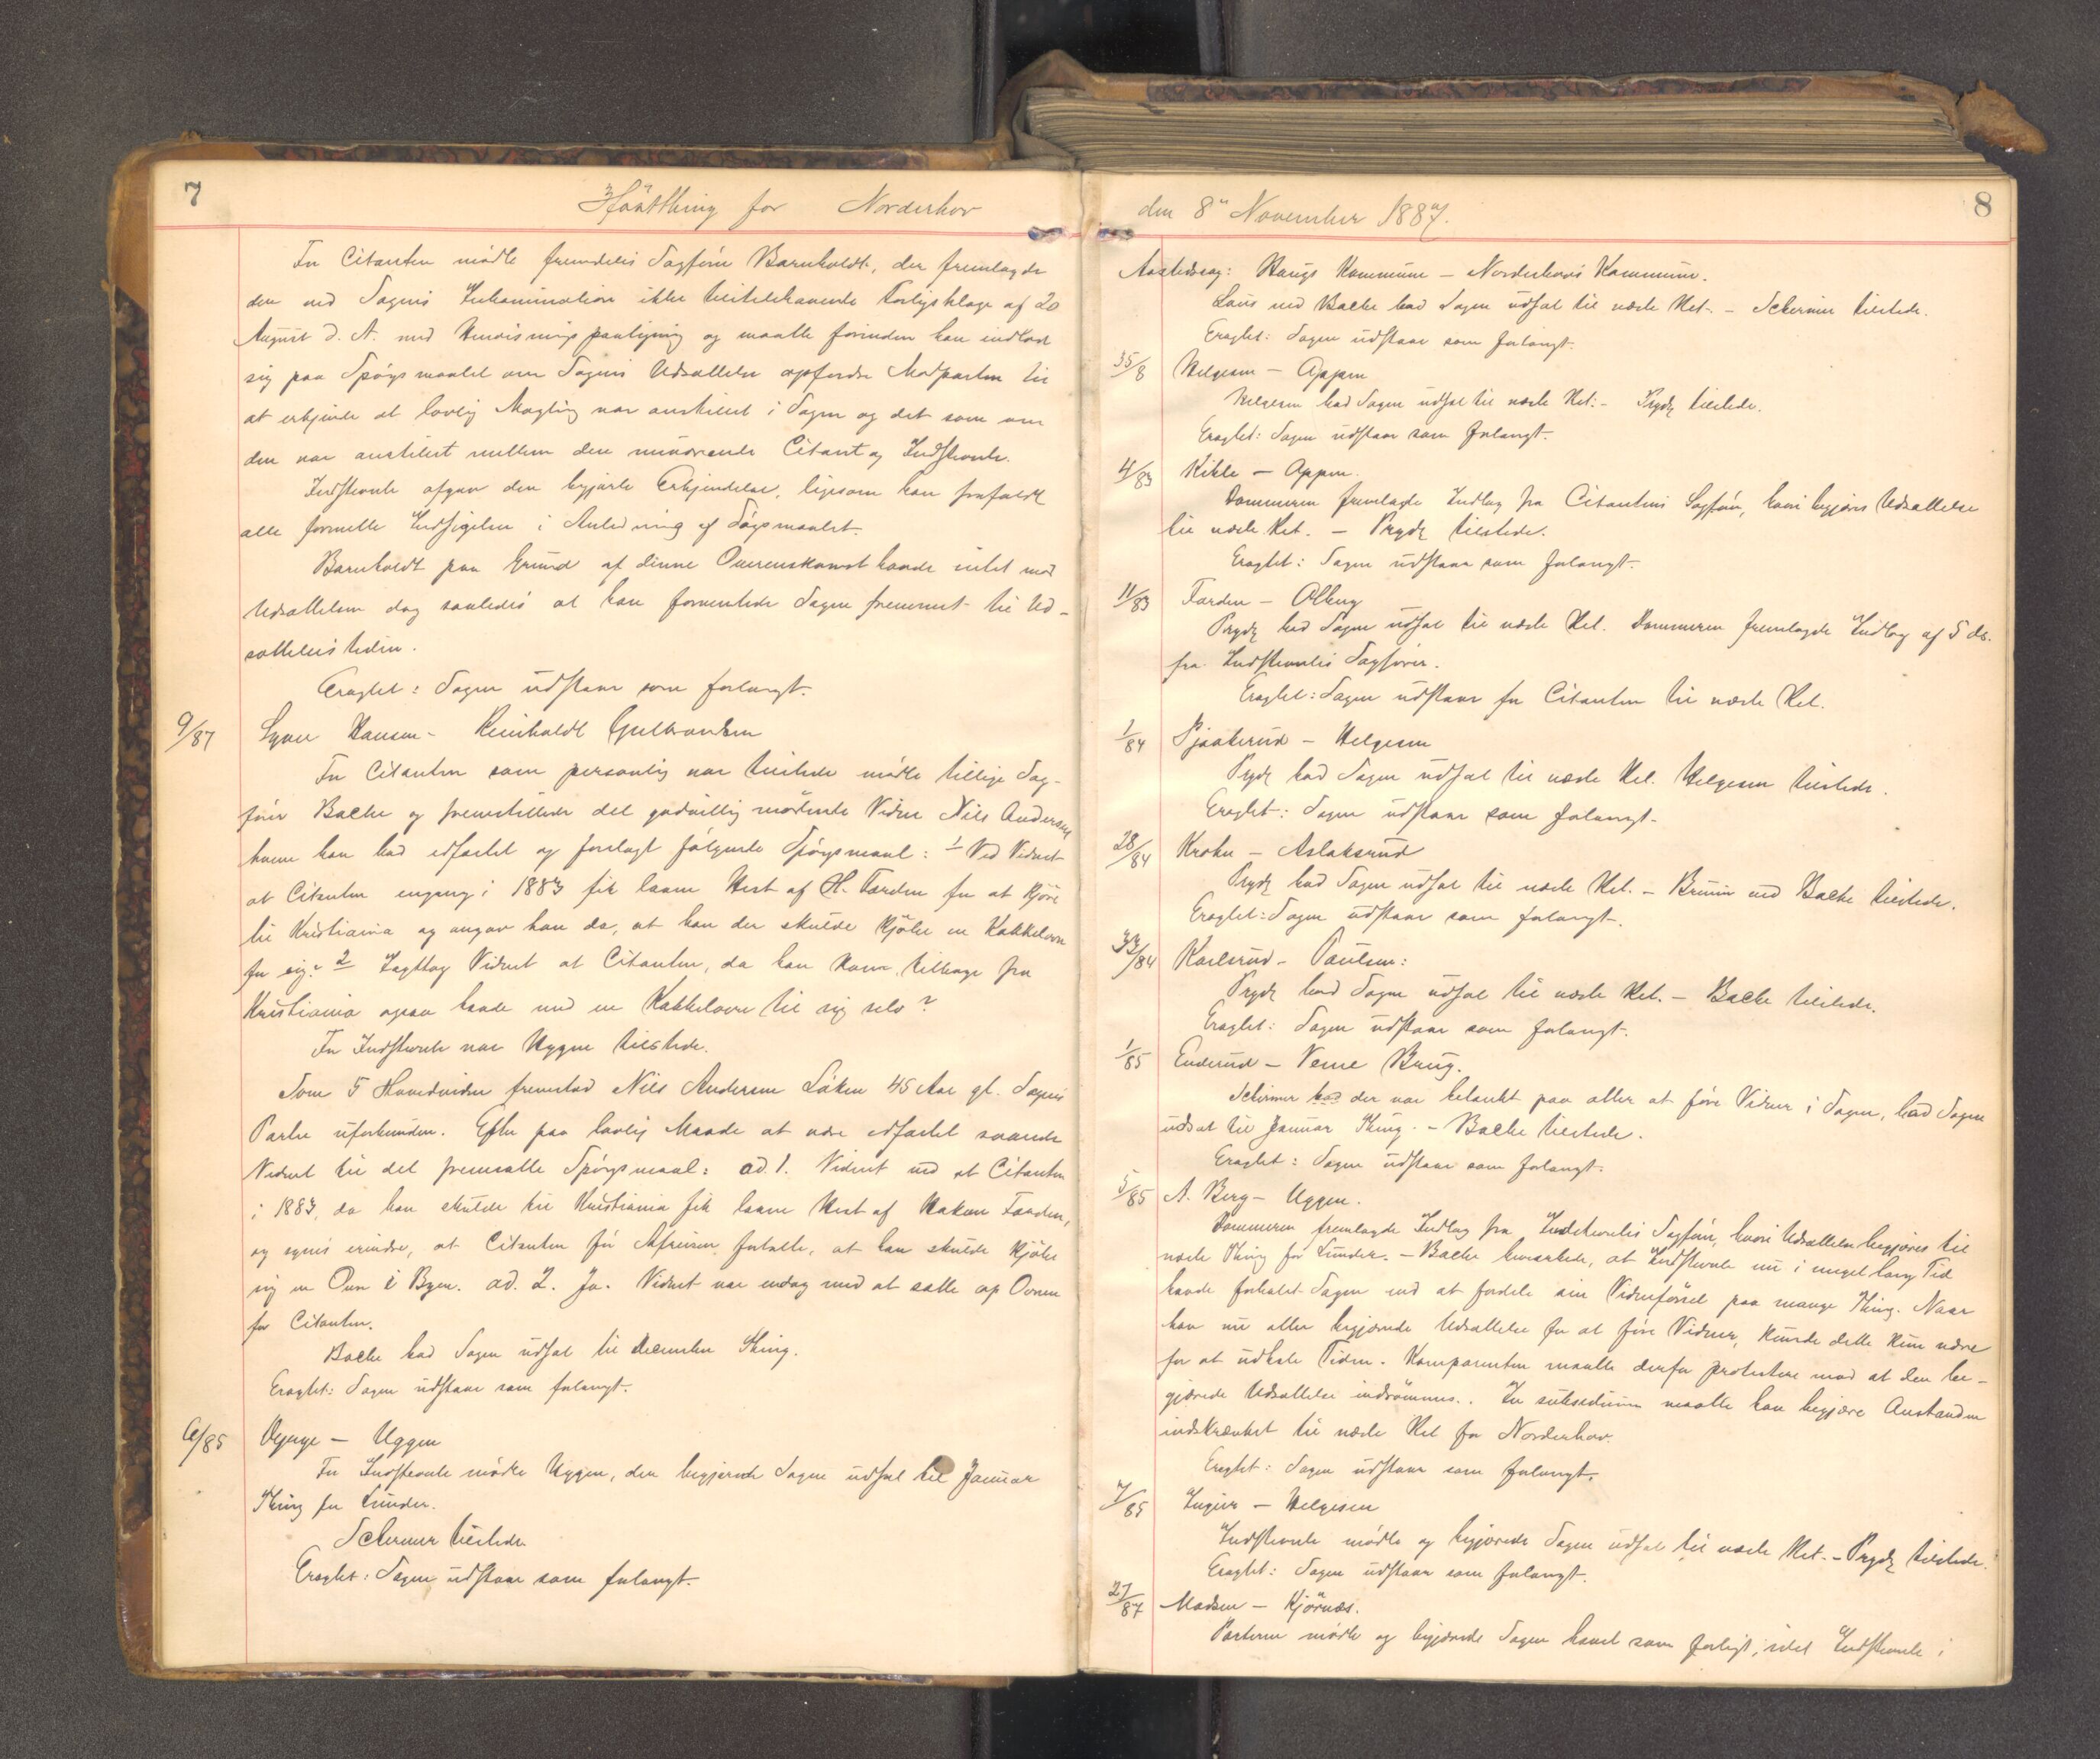 7
Høstthing for Norderhov
For Citanten mødte fremdeles Sagfører Barnholdt, der fremlagde
den ved Sagens Inkamination ikke tilstedekomne Forligsklage af 20
August d. A. med Henvisningspaategning og maatte forinden han indlod
sig paa Spørgsmaalet om Sagens Udsættelse opfordre Modparten til
at erkjende at lovlig Mægling var anstillet i Sagen og det som om
den var anstillet mellem den nuværende Citant og Indstevnte.
Indstevnte afgav den begjærte Erkjendelse, ligesom han frafaldt
alle formelle Indsigelser i Anledning af Søgsmaalet.
Barnholdt paa Grund af denne Overenskomst havde intet mod
Udsættelsen dog saaledes at han forventede Sagen fremmet til Ud-
sættelsestiden.
Eragtet: Sagen udstaar som forlangt.
9/87 Hansen - Reinholdt Gulbrandsen
For Citanten som personlig var tilstede mødte tillige Sag-
fører Bache og fremstillede det godvillig mødende Vidne Nils Andersen
hvem han bad edfæstet og forelagt følgende Spørgsmaal: 1 Ved Vidnet
at Citanten engang i 1883 fik laane Hest af H. Farden for at kjøre
til Kristiania og angav han da, at han der skulde kjøbe en Kakkelovn
for sig? 2 Iagttog Vidnet at Citanten, da han kom tilbage fra
Kristiania ogsaa havde med en Kakkelovn til sig selv?
For Indstevnte var Uggen tilstede.
Som 5 Hovedvidne fremstod Nils Andersen Løken 45 Aar gl. Sagens
Parter uforbunden. Efter paa lovlig Maade at være edfæstet svarede
Vidnet til det fremsatte Spørgsmaal: ad. 1. Vidnet ved at Citanten
i 1883, da han skulde til Kristiania fik laane Hest af Haken Farden,
og synes erindre, at Citanten før Afreisen fortalte, at han skulde kjøbe
sig en Ovn i Byen. ad. 2. Ja. Vidnet var endog med at sætte op Ovnen
for Citanten.
Bache bad Sagen udsat til December Thing.
Eragtet: Sagen udstaar som forlangt.
6/85 - Uggen
For Indstevnte mødte Uggen, der begjærede Sagen udsat til Januar
Thing for Lunder.
Schirmer tilstede
Eragtet: Sagen udstaar som forlangt.
8
den 8de November 1887.
Aastedssag: Haugs Kommune - Norderhovs Kommune.
Laus ved Bache bad Sagen udsat til næste Ret. - Schirmer tilstede.
Eragtet: Sagen udstaar som forlangt.
35/8 Helgesen - Appen
Helgesen bad Sagen udsat til næste Ret. - Prydz tilstede.
Eragtet: Sagen udstaar som forlangt.
4/83 Kihle - Appen.
Dommeren fremlagde Indlæg fra Citantens Sagfører, hvori begjæres Udsættelse
til næste Ret. - Prydz tilstede.
Eragtet: Sagen udstaar som forlangt.
11/83 Farden - Olberg
Prydz bad Sagen udsat til næste Ret. Dommeren fremlagde Indlæg af 5 ds.
fra Indstevntes Sagfører.
Eragtet: Sagen udstaar for Citanten til næste Ret.
1/84 Pjaakerud - Helgesen
Prydz bad Sagen udsat til næste Ret. Helgesen tilstede.
Eragtet: Sagen udstaar som forlangt.
28/84 Krohn - Aslaksrud
Prydz bad Sagen udsat til næste Ret. - Bruun ved Bache tilstede.
Eragtet: Sagen udstaar som forlangt.
33/84 Karlsrud - Paulsen:
Prydz bad Sagen udsat til næste Ret. - Bache tilstede.
Eragtet: Sagen udstaar som forlangt.
1/85 Enderud - Veme Brug.
Schirmer bad der var betænkt paa atter at føre Vidner i Sagen, bad Sagen
udsat til Januar Thing. - Bache tilstede.
Eragtet: Sagen udstaar som forlangt.
5/85 A. Berg - Uggen.
Dommeren fremlagde Indlæg fra Indstevntes Sagfører, hvori Udsættelse begjæres til
næste Thing for Lunder. - Bache bemærkede, at Indstevnte nu i meget lang Tid
havde forhalet Sagen ved at fordele sin Vidneførsel paa mange Thing. Naar
han nu atter begjærede Udsættelse for at føre Vidner, kunde dette kun være
for at udhale Tiden. Komparenten maatte derfor protestere mod at den be-
gjærede Udsættelse indrømmes. In subsidium maatte han begjære Anstanden
indskrænket til næste Ret for Norderhov.
Eragtet: Sagen udstaar som forlangt.
7/85 - Helgesen
Indstevnte mødte og begjærede Sagen udsat til næste Ret. - Prydz tilstede.
Eragtet: Sagen udstaar som forlangt.
27/87 Madsen - Kjørnæs.
Parterne mødte og begjærede Sagen hævet som forligt, idet Indstevnte i